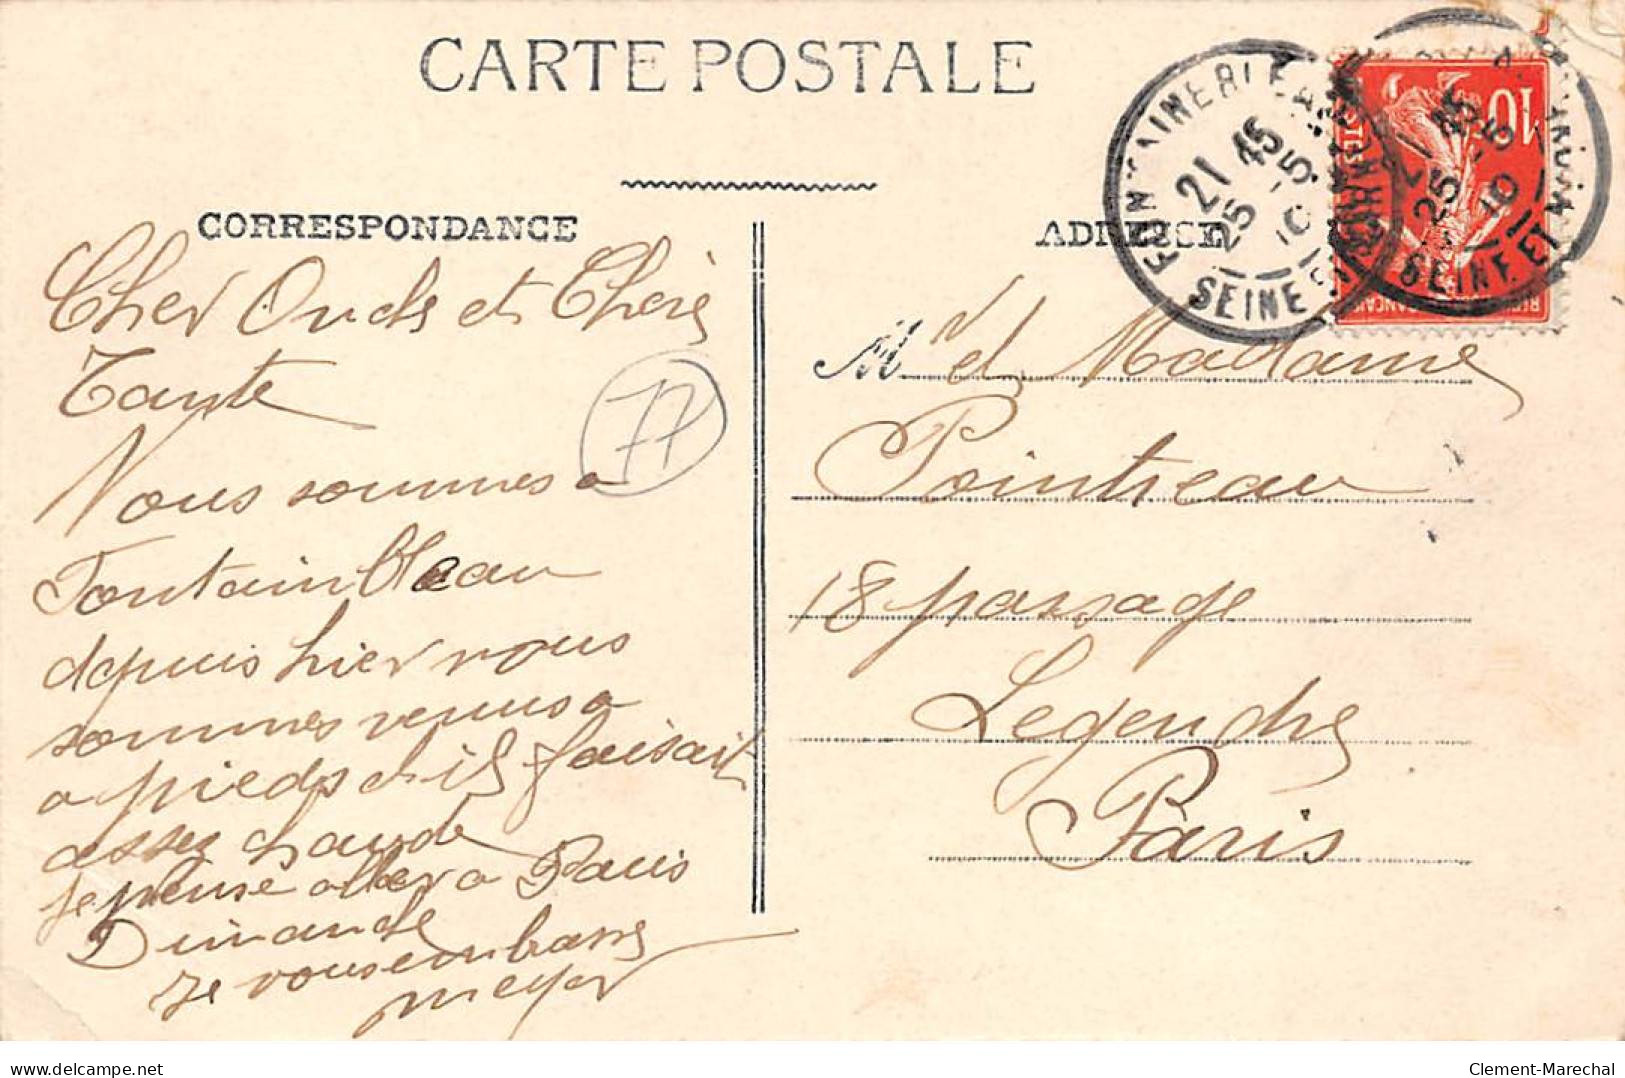 CARTE POSTALE
CORRESPONDANCE
Cher Oncle et Chère
Tante
77
Nous sommes a
Fontainbleau
depuis hier nous
sommes venus a
a pieds et il faisait
assez chaude
je pense aller a Paris
Dimanche
Je vous embrasse
meyer
ADRESSE
FONTAINEBLEAU
21 45
25 - 5
10
SEINE ET MARNE
21 45
25 - 5
10
SEINE ET MARNE
10
Mr et Madame
Pointreau
18 passage
Legendre
Paris
delcampe.net
Clement-Marechal